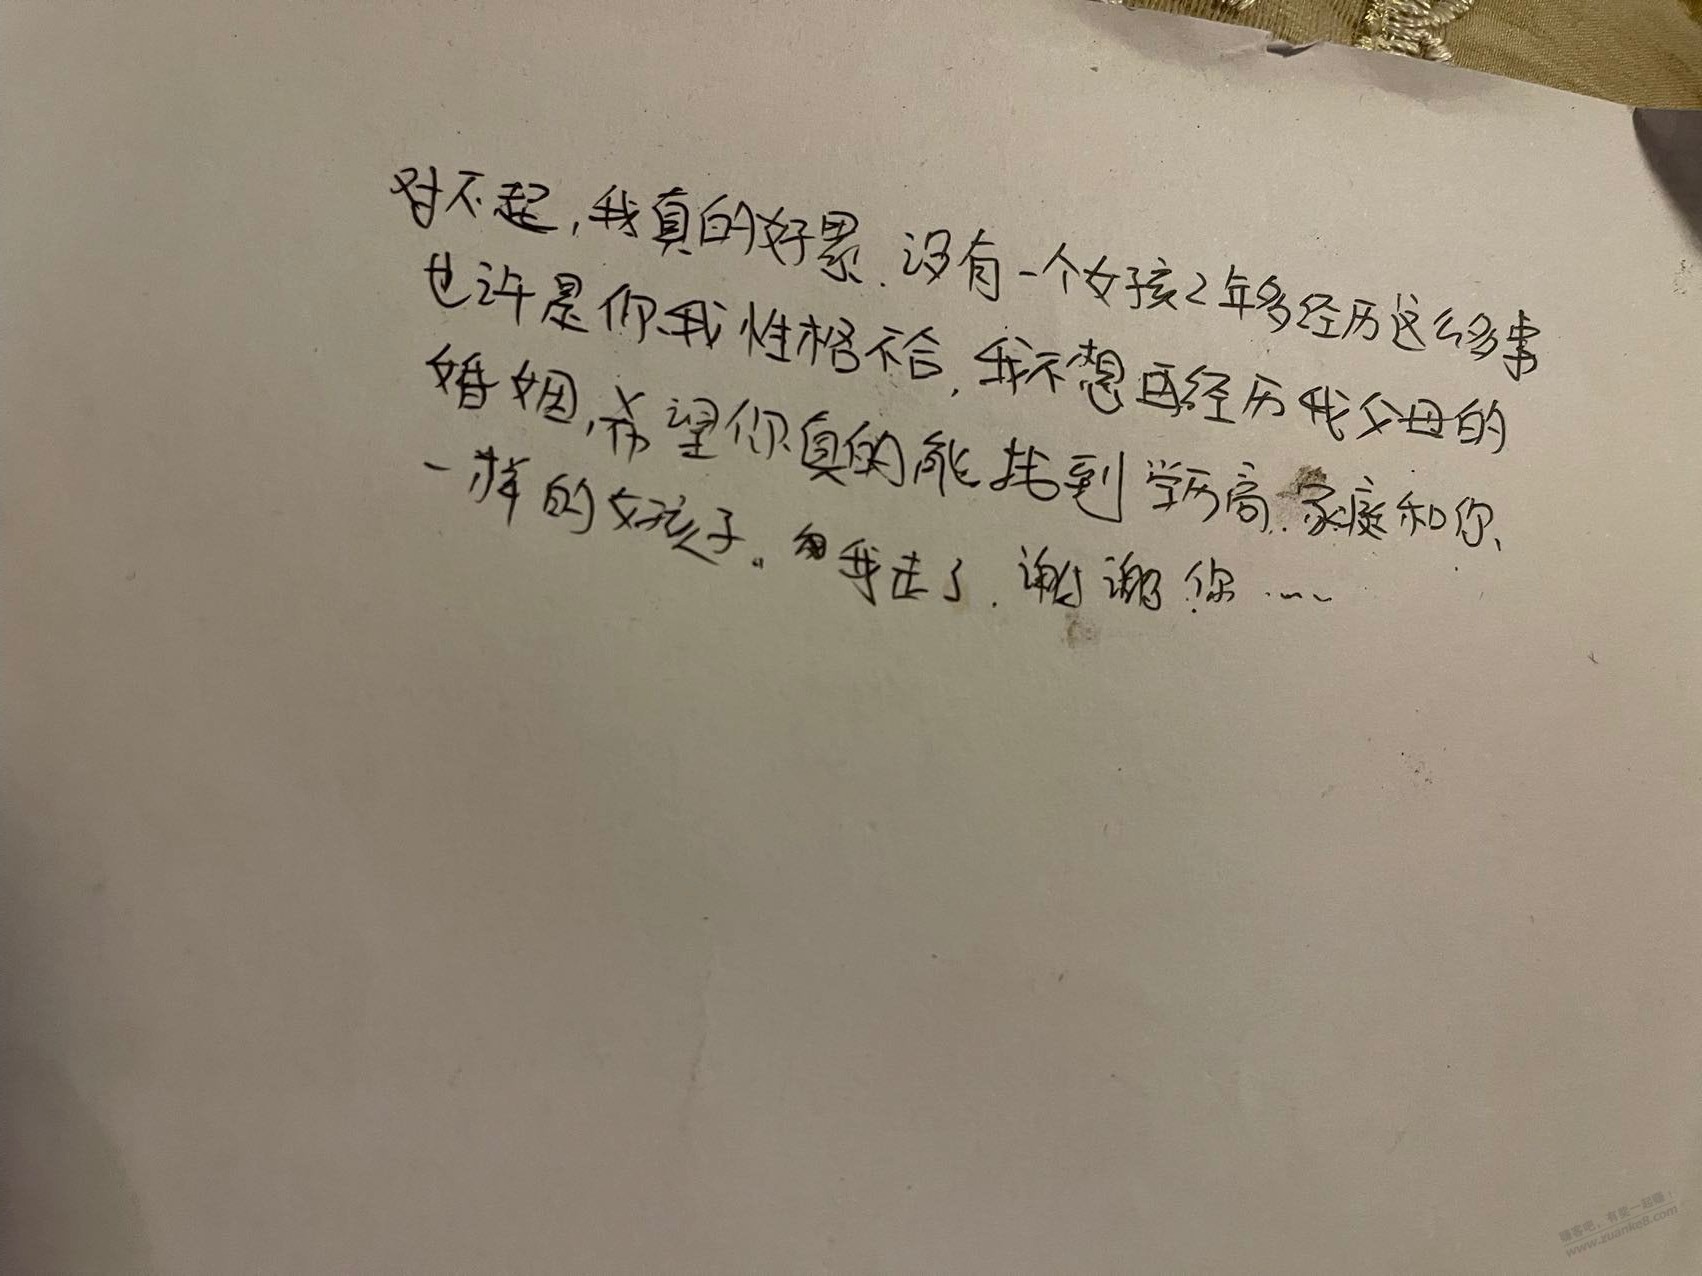 对不起,我真的好累.没有一个女孩2年多经历这么多事
也许是你我性格不合,我不想再经历我父母的
婚姻,希望你真的能找到学历高.家庭和你、
一样的女孩子。我走了.谢谢你……
赚客吧,有奖一起赚!
www.zuanke8.com